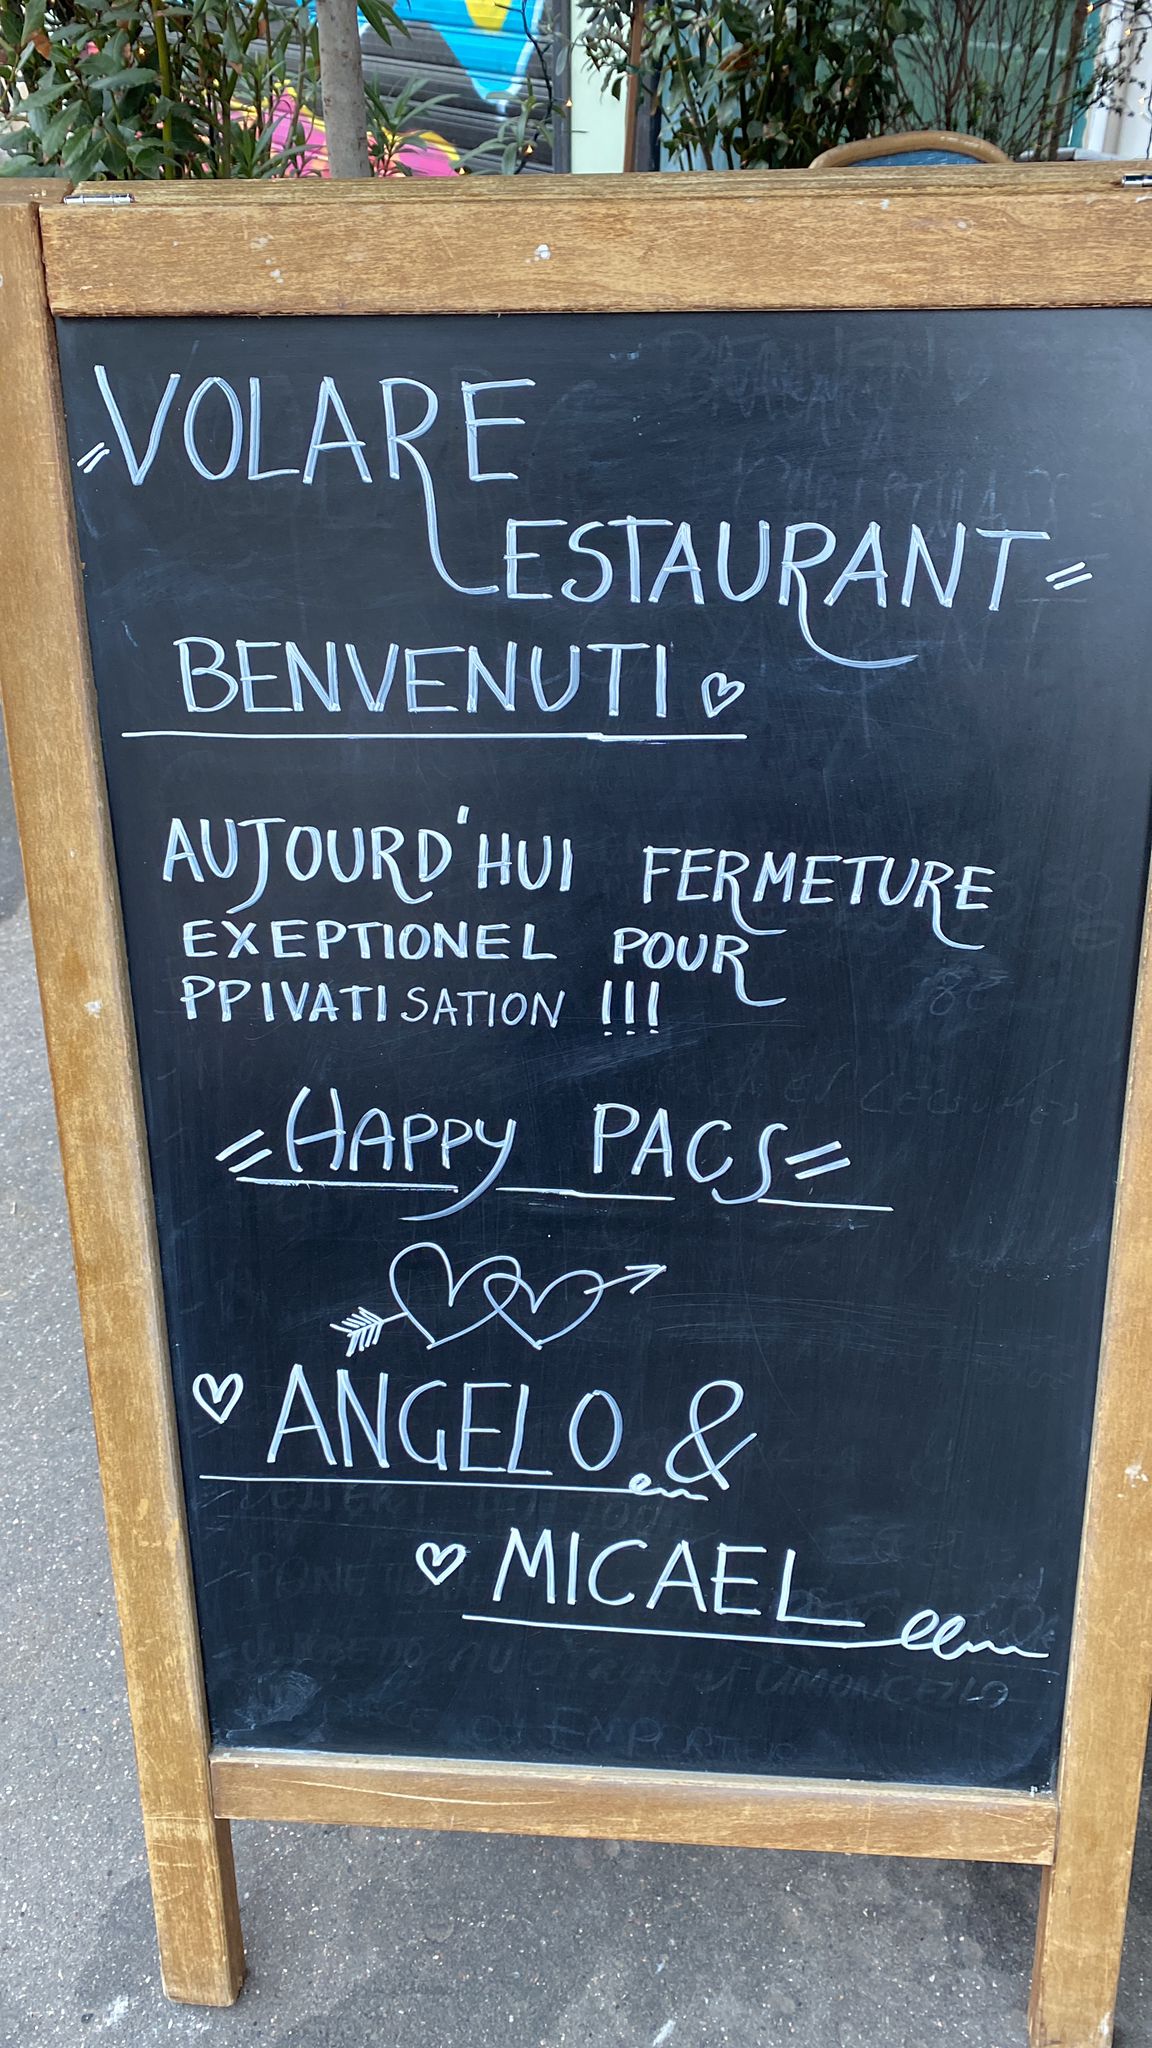 VOLARE
RESTAURANT
BENVENUTI
AUJOURD'HUI FERMETURE
EXEPTIONEL POUR
PPIVATISATION !!!
HAPPY PACS
ANGELO &
MICAEL
LIMONCELLO